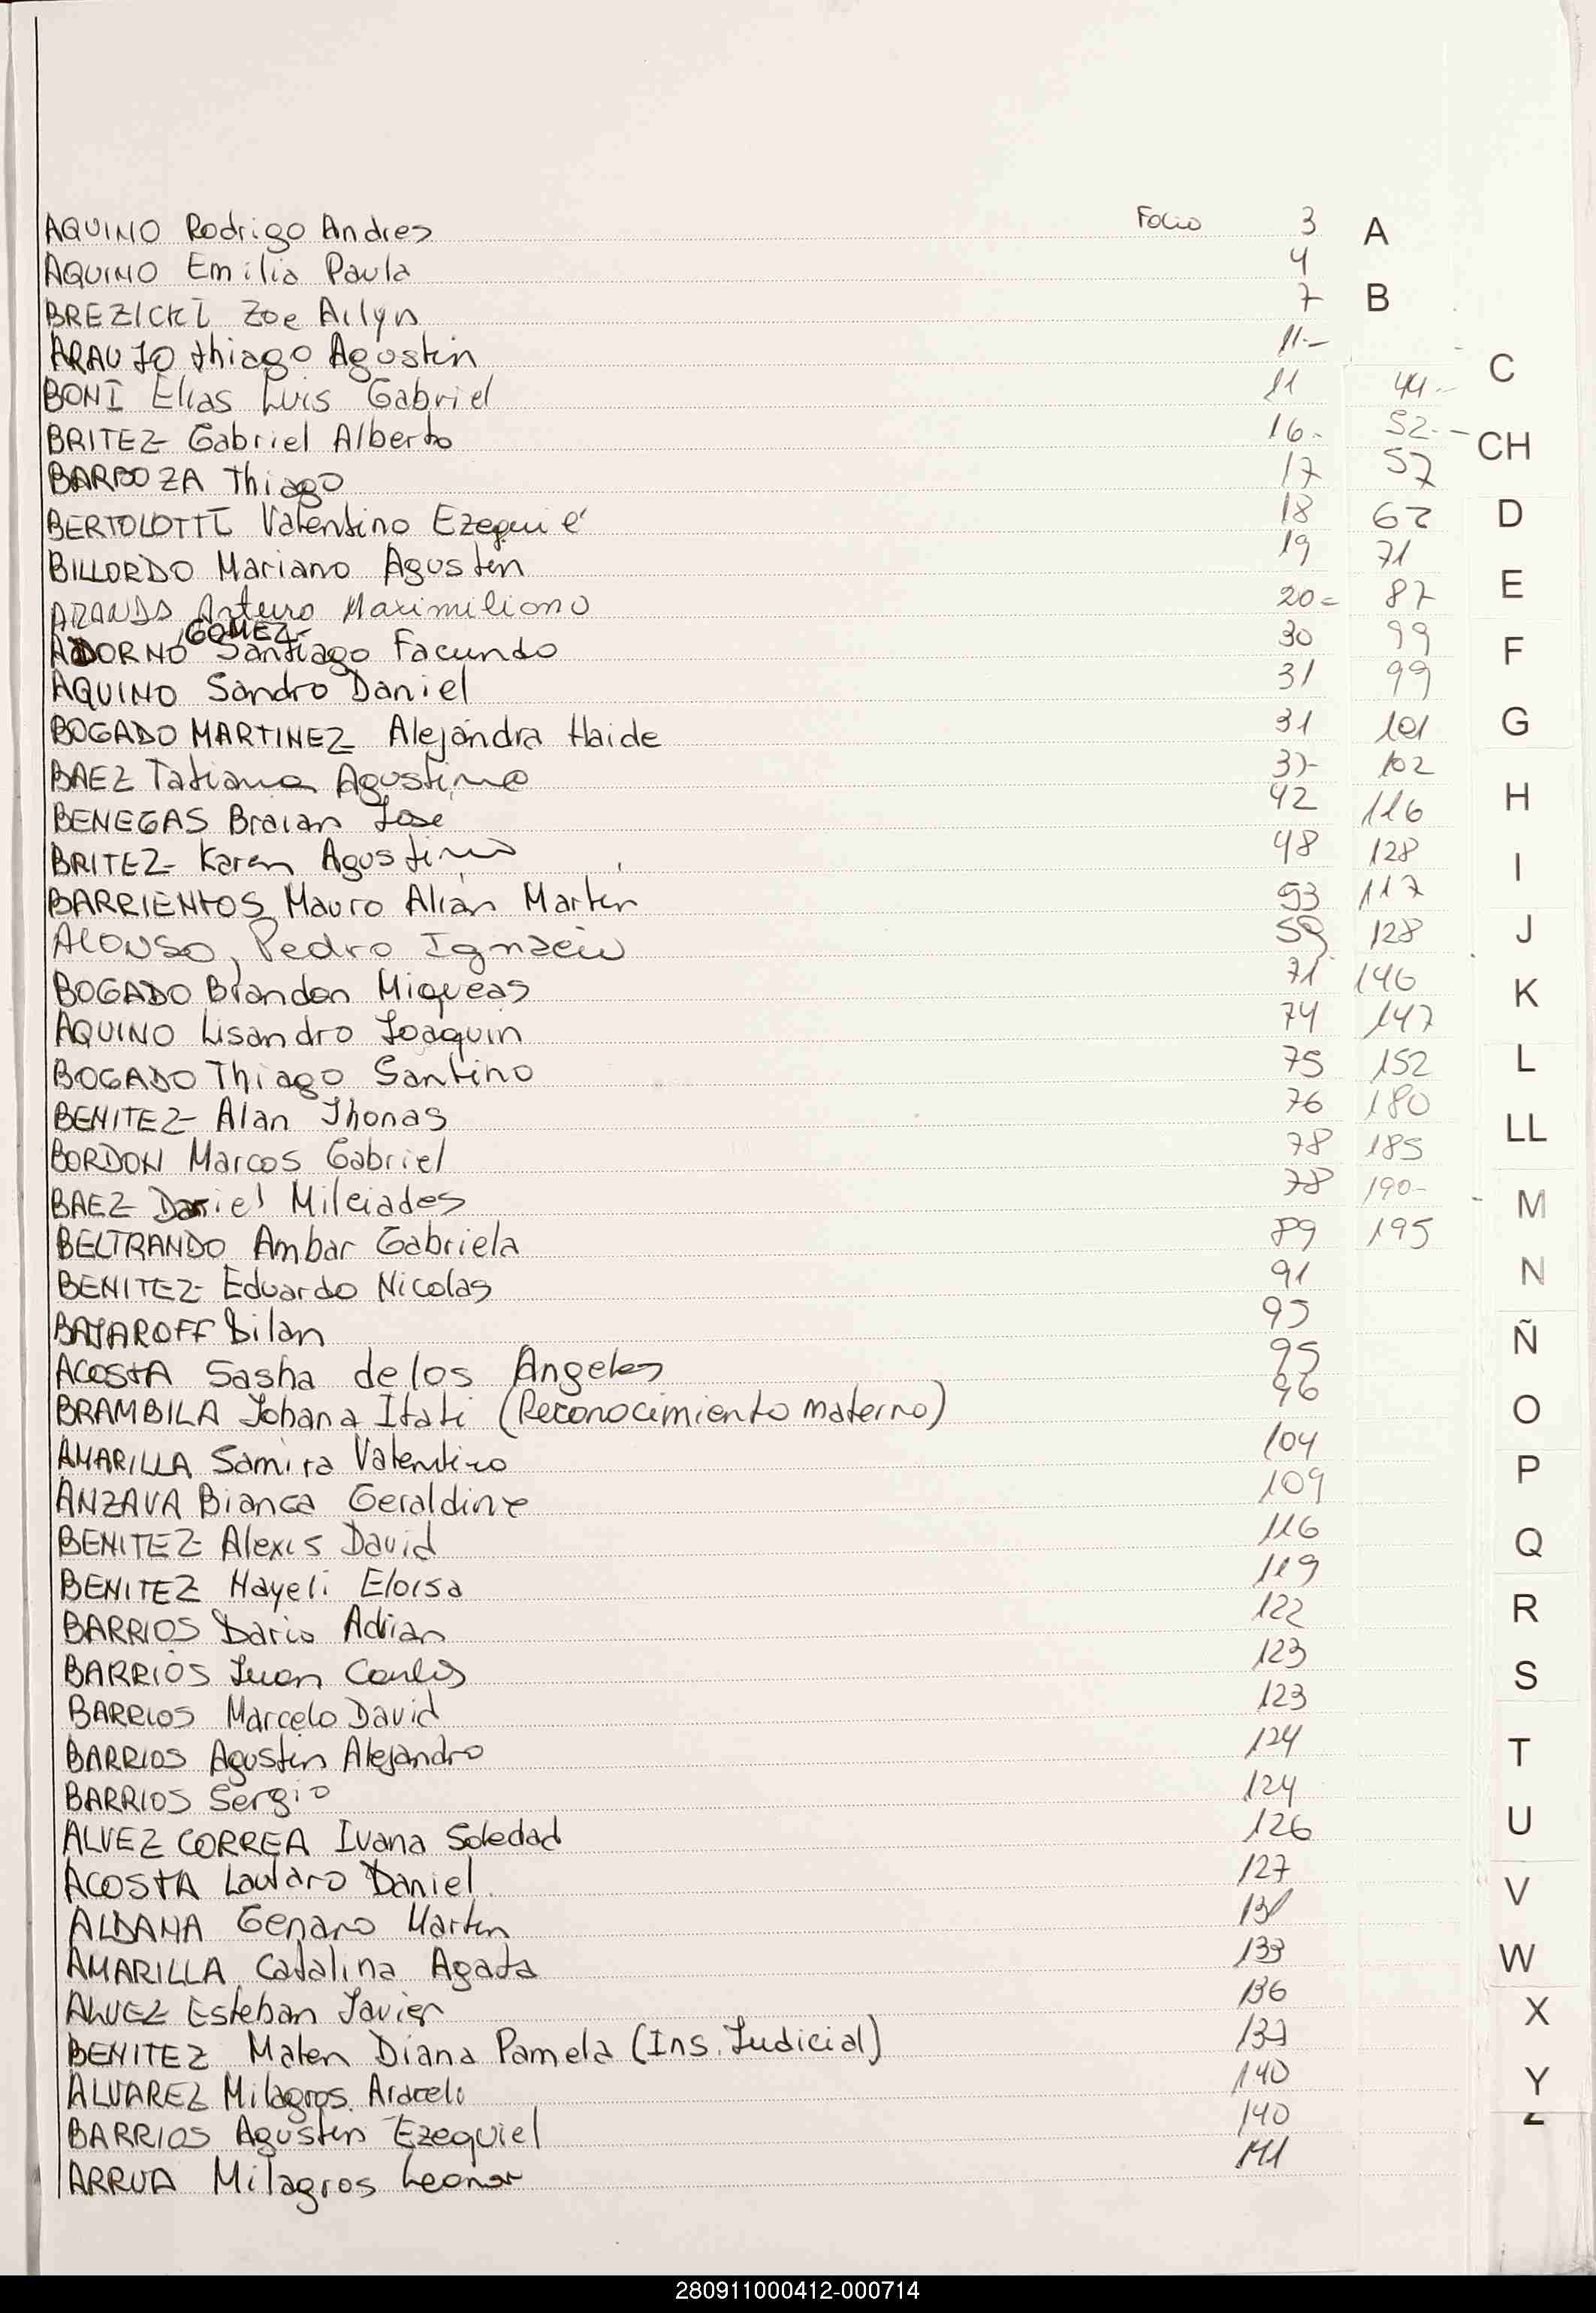 AQUINO Rodrigo Andres Folio 3 A
AQUINO Emilia Paula 4
BREZICKI Zoe Ailyn 7 B
ARAUJO thiago Agustin 11.-
C
BONI Elias Luis Gabriel 11 44.-
BRITEZ Gabriel Alberto 16. 52.- CH
BARBOZA Thiago 17 57
BERTOLOTTI Valentino Ezequie 18 62 D
BILLORDO Mariano Agustin 19 71
ARANDA Arturo Maximiliano 20= 87 E
GOMEZ
ADORNO Santiago Facundo 30 99 F
AQUINO Sandro Daniel 31 99
BOGADO MARTINEZ Alejandra Haide 31 101 G
BAEZ Tatiana Agustina 102
BENEGAS Braian Jose 42 116 H
BRITEZ Karen Agustina 48 128 I
BARRIENTOS Mauro Alian Martin 53 117
ALONSO, Pedro Ignacio 59 128 J
BOGADO Brandon Miqueas 71 146 K
AQUINO Lisandro Joaquin 74 147
BOGADO Thiago Santino 75 152 L
BENITEZ Alan Jhonas 76 180 LL
BORDON Marcos Gabriel 78 185
BAEZ Daniel Milciades 78 190- M
BELTRANDO Ambar Gabriela 89 195
BENITEZ Eduardo Nicolas 91 N
BAJAROFF Dilan 95 Ñ
ACOSTA Sasha de los Angeles 95
BRAMBILA Johana Itati (Reconocimiento materno) 96 O
AMARILLA Samira Valentino 104 P
ANZAVA Bianca Geraldine 109
BENITEZ Alexis David 116 Q
BENITEZ Nayeli Eloisa 119
BARRIOS Dario Adrian 122 R
BARRIOS Juan Carlos 123 S
BARRIOS Marcelo David 123
BARRIOS Agustin Alejandro 124 T
BARRIOS Sergio 124
ALVEZ CORREA Ivana Soledad 126 U
ACOSTA Lautaro Daniel 127 V
ALDANA Genaro Martin 131
AMARILLA Catalina Agata 133 W
ALVEZ Esteban Javier 136 X
BENITEZ Malen Diana Pamela (Ins. Judicial)
ALVAREZ Milagros Araceli 140 Y
BARRIOS Agustin Ezequiel 140 Z
ARRUA Milagros Leonor 141
280911000412-000714